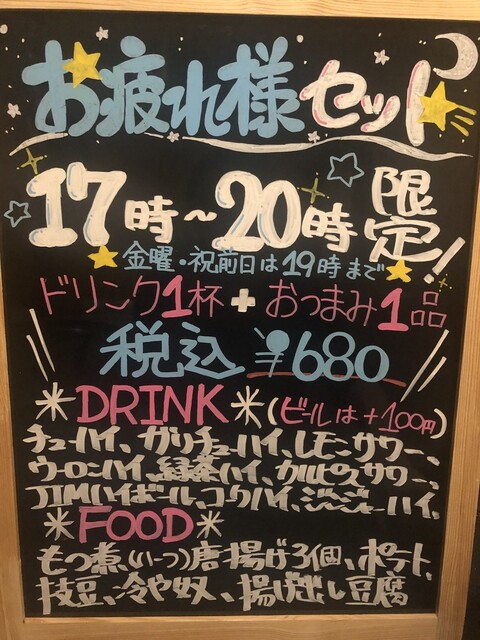 お疲れ様セット
17時~20時限定!
金曜・祝前日は19時まで
ドリンク1杯+おつまみ1品
税込¥680
*DRINK*(ビールは+100円)
チューハイ、ガリチューハイ、レモンサワー、
ウーロンハイ、緑茶ハイ、カルピスサワー、
JIMハイボール、コークハイ、ジンジャーハイ、
*FOOD*
もつ煮、(ハーフ)唐揚げ3個、ポテト、
枝豆、冷や奴、揚げ出し豆腐